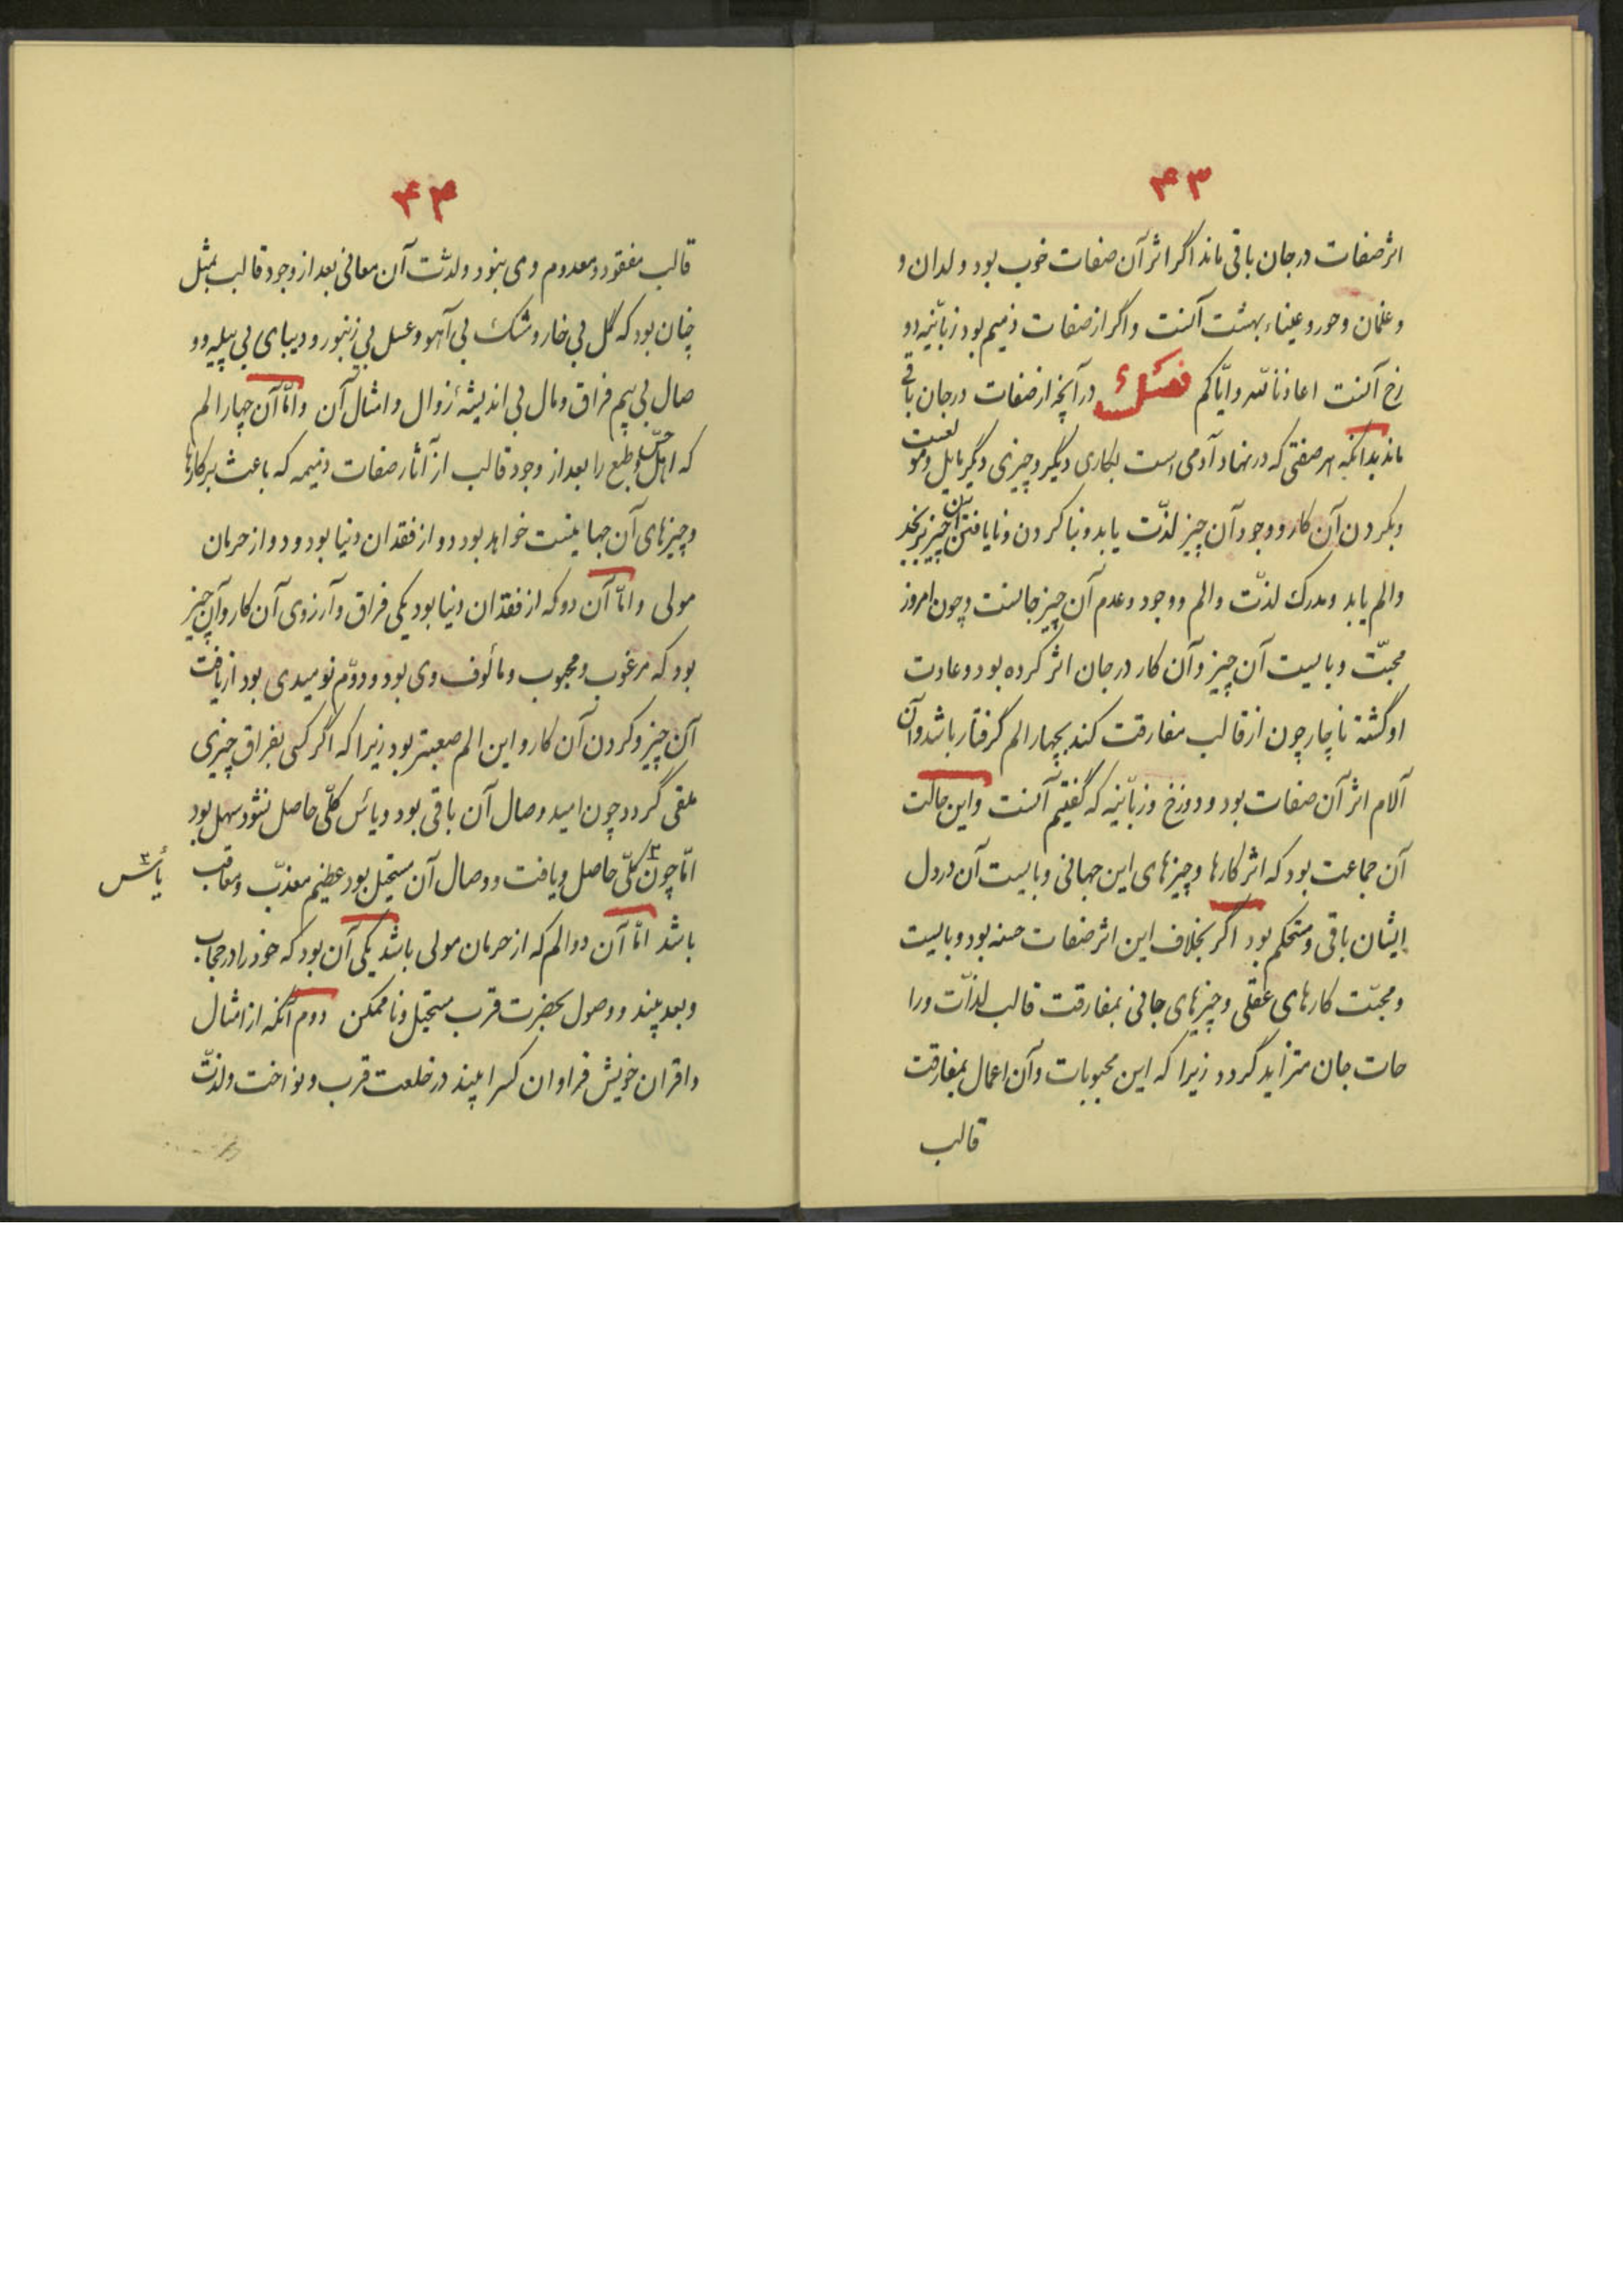 ۴۳
اثر صفات در جان باقی ماند اگر اثر آن صفات خوب بود ولدان و
و غلمان و حور و عیناء بهشت آنست و اگر از صفات ذمیم بود زبانیه دو
زخ آنست اعاذنا الله و ایاکم فصل در آنچه از صفات در جان باقی
ماند بدانکه هر صفتی که در نهاد آدمی است بکاری دیگر و چیزی دیگر مایل و مو
لعست
و بکردن آن کار و وجود آن چیز لذّت یابد و بناکردن و نایافتن آن چیز برنجد
والم یابد و مدرک لذّت والم و وجود و عدم آن چیز جانست و چون امروز
محبّت و بایست آن چیز و آن کار در جان اثر کرده بود و عادت
او گشته ناچار چون از قالب مفارقت کند بچهار الم گرفتار باشد و آن
آلام اثر آن صفات بود و دوزخ و زبانیه که گفتیم آنست و این حالت
آن جماعت بود که اثر کارها و چیزهای این جهانی و بایست آن در دل
ایشان باقی و مستحکم بود اگر بخلاف این اثر صفات حسنه بود و بایست
و محبّت کارهای عقلی و چیزهای جانی بمفارقت قالب لذّات و را
حات جان متزاید گردد زیرا که این محبوبات و آن اعمال بمفارقت
قالب
۴۴
قالب مفقود و معدوم وی نبود و لذت آن معانی بعد از وجود قالب بمثل
چنان بود که گل بی خار و مشک بی آهو و عسل بی زنبور و دیبای بی پیله و و
صال بی بیم فراق و مال بی اندیشهٔ زوال و امثال آن و امّا آن چهار الم
که اهل حسّ و طبع را بعد از وجود قالب از آثار صفات ذمیمه که باعث بر کارها
و چیزهای آن جهانیست خواهد بود دو از فقدان دنیا بود و دو از حرمان
مولی و امّا آن دو که از فقدان دنیا بود یکی فراق و آرزوی آن کار و آن چیز
بود که مرغوب و محبوب و مألوف وی بود و دوّم نومیدی بود از یافت
آن چیز و کردن آن کار و این الم صعبتر بود زیرا که اگر کسی بفراق چیزی
ملقی گردد چون امید وصال آن باقی بود و یأس کلّی حاصل نشود سهل بود
امّا چون ۳ کلّی حاصل و یافت و وصال آن مستحیل بود عظیم معذّب و معاقب
یأس ۳
باشد امّا آن دو الم که از حرمان مولی باشد یکی آن بود که خود را در حجاب
و بعد بیند و وصول بحضرت قرب مستحیل و ناممکن دوم آنکه از امثال
و اقران خویش فراوان کس را بیند در خلعت قرب و نواخت و لذّت